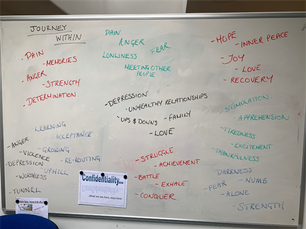 JOURNEY
WITHIN
- PAIN
- MEMORIES
- ANGER
- STRENGTH
- DETERMINATION
PAIN
ANGER
LONLINESS
FEAR
MEETING OTHER
PEOPLE
- HOPE
- INNER PEACE
- JOY
- LOVE
- RECOVERY
- DEPRESSION
- UNHEALTHY RELATIONSHIPS
- UPS & DOWNS
- FAMILY
- LOVE
STIMULATION
APPREHENSION
TIREDNESS
- EXCITEMENT
LEARNING
ACCEPTANCE
GROWING
- RE-ROUTING
UPHILL
- ANGER
- VIOLENCE
- DEPRESSION
- TUNNEL
- STRUGGLE
- ACHIEVEMENT
- BATTLE
- EXHALE
- CONQUER
DARKNESS
- FEAR
- NUMB
- ALONE
STRENGTH
Confidentiality...